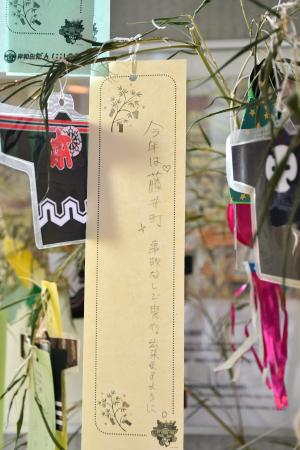 岸和田だんじり
今年は♡藤井町
事故なしで曳行出来ますように